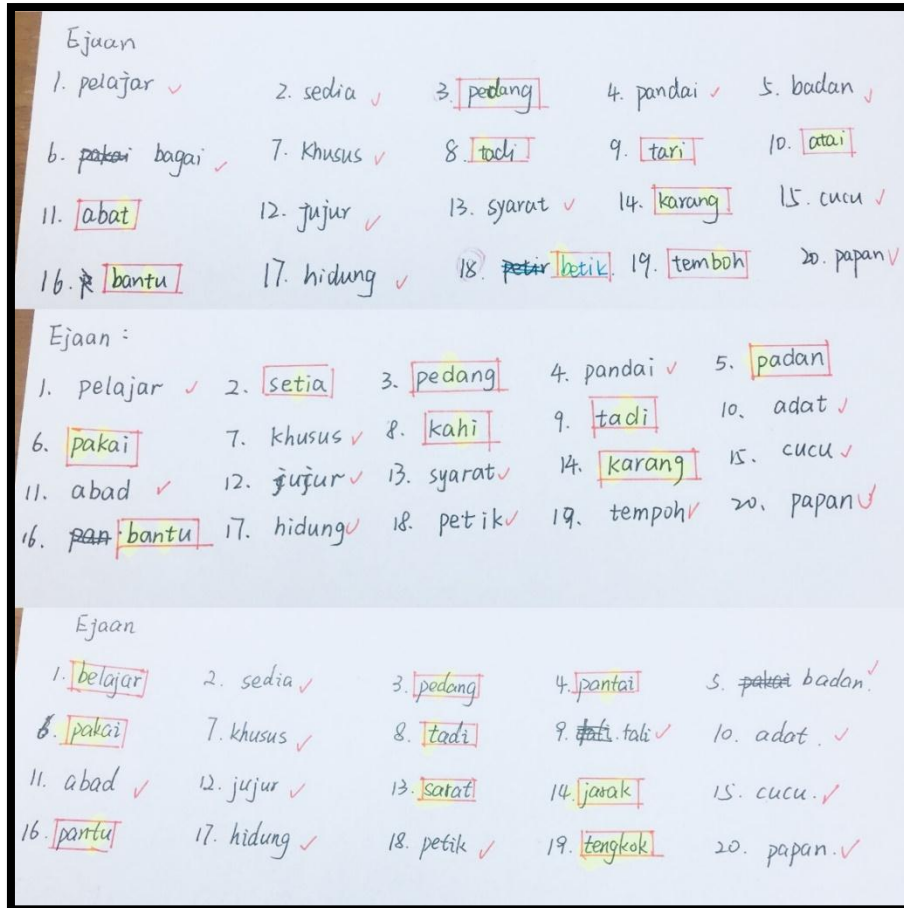 Ejaan
1. pelajar ✓ 2. sedia ✓ 3. pedang 4. pandai ✓ 5. badan ✓
6. pakai bagai ✓ 7. khusus ✓ 8. tadi 9. tari 10. atai
11. abat 12. jujur ✓ 13. syarat ✓ 14. karang 15. cucu ✓
16. bantu 17. hidung ✓ 18. petir betik. 19. temboh 20. papan ✓
Ejaan :
1. pelajar ✓ 2. setia 3. pedang 4. pandai ✓ 5. padan
6. pakai 7. khusus ✓ 8. kahi 9. tadi 10. adat ✓
11. abad ✓ 12. jujur ✓ 13. syarat ✓ 14. karang 15. cucu ✓
16. pan bantu 17. hidung ✓ 18. petik ✓ 19. tempoh ✓ 20. papan ✓
Ejaan
1. belajar 2. sedia ✓ 3. pedang 4. pantai 5. pakai badan. ✓
6. pakai 7. khusus ✓ 8. tadi 9. tali ✓ 10. adat. ✓
11. abad ✓ 12. jujur ✓ 13. sarat 14. jarak 15. cucu. ✓
16. pantu 17. hidung ✓ 18. petik ✓ 19. tengkok 20. papan. ✓